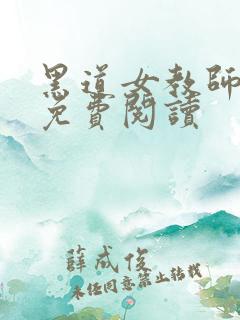 黑道女教師
免費閱讀
薛成俊
未经同意禁止转载